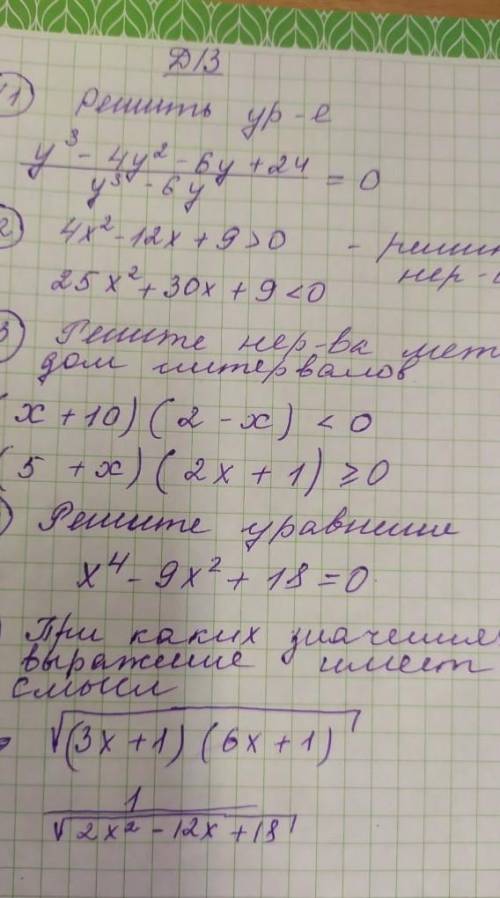 Д/З
1 Решить ур-е
y³ - 4y² - 6y + 24
y³ - 6y
= 0
2 4x² - 12x + 9 > 0 - реши
25x² + 30x + 9 < 0
нер-
3 Решите нер-ва мет
дом интервалов
(x + 10)(2 - x) < 0
(5 + x)(2x + 1) ≥ 0
Решите уравнение
x⁴ - 9x² + 18 = 0
При каких значения
выражение имеет
смысл
√(3x + 1)(6x + 1)
1
√2x² - 12x + 18